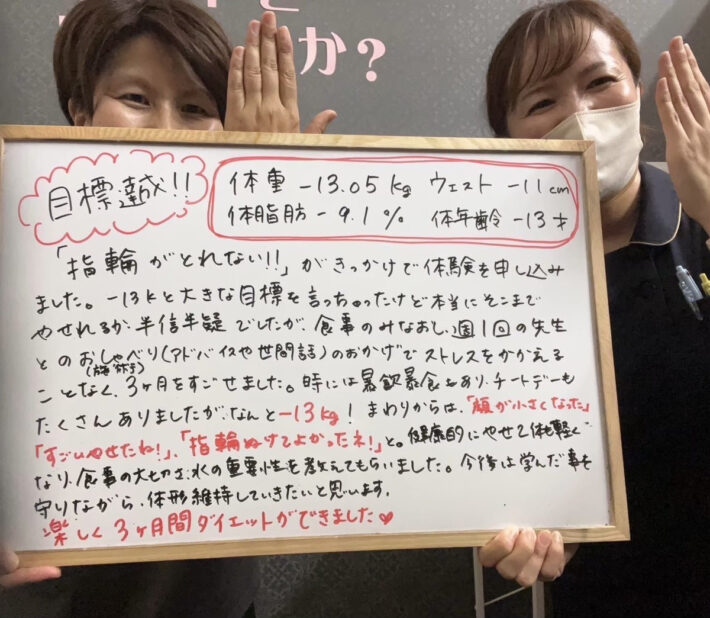 か?
目標達成!!
体重 -13.05kg ウエスト -11cm
体脂肪 -9.1% 体年齢 -13才
「指輪がとれない!!」がきっかけで体験を申し込み
ました。-13kと大きな目標を言っちゃったけど本当にそこまで
やせれるか、半信半疑でしたが、食事のみなおし、週1回の先生
とのおしゃべり(アドバイスや世間話)のおかげでストレスをかかえる
ことなく、3ヶ月をすごせました。時には暴飲暴食もあり、チートデーも
たくさんありましたが、なんと-13kg! まわりからは、「顔が小さくなった」
「すごいやせたね!」、「指輪ぬけてよかったネ!」と。健康的にやせて体も軽く
なり、食事の大切さ、水の重要性を教えてもらいました。今後は学んだ事を
守りながら、体形維持していきたいと思います。
楽しく3ヶ月間ダイエットができました♡